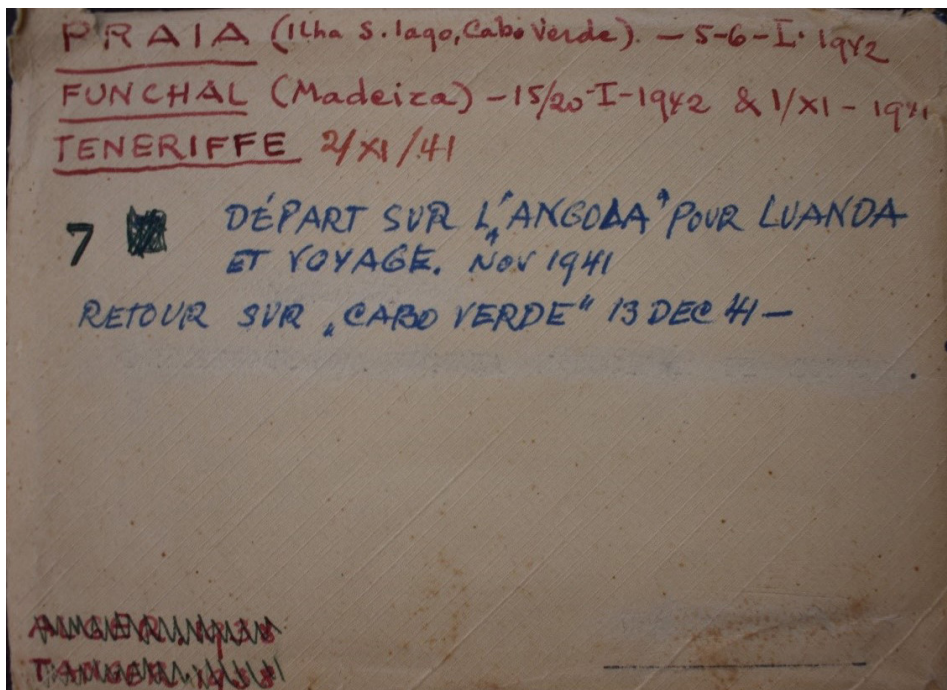 PRAIA (Ilha S. Iago, Cabo Verde). – 5-6-I. 1942
FUNCHAL (Madeira) – 15/20-I-1942 & 1/XI – 1941
TENERIFFE 2/XI/41
7 DÉPART SUR L'"ANGOLA" POUR LUANDA
ET VOYAGE. NOV 1941
RETOUR SUR „CABO VERDE" 13 DEC 41 –